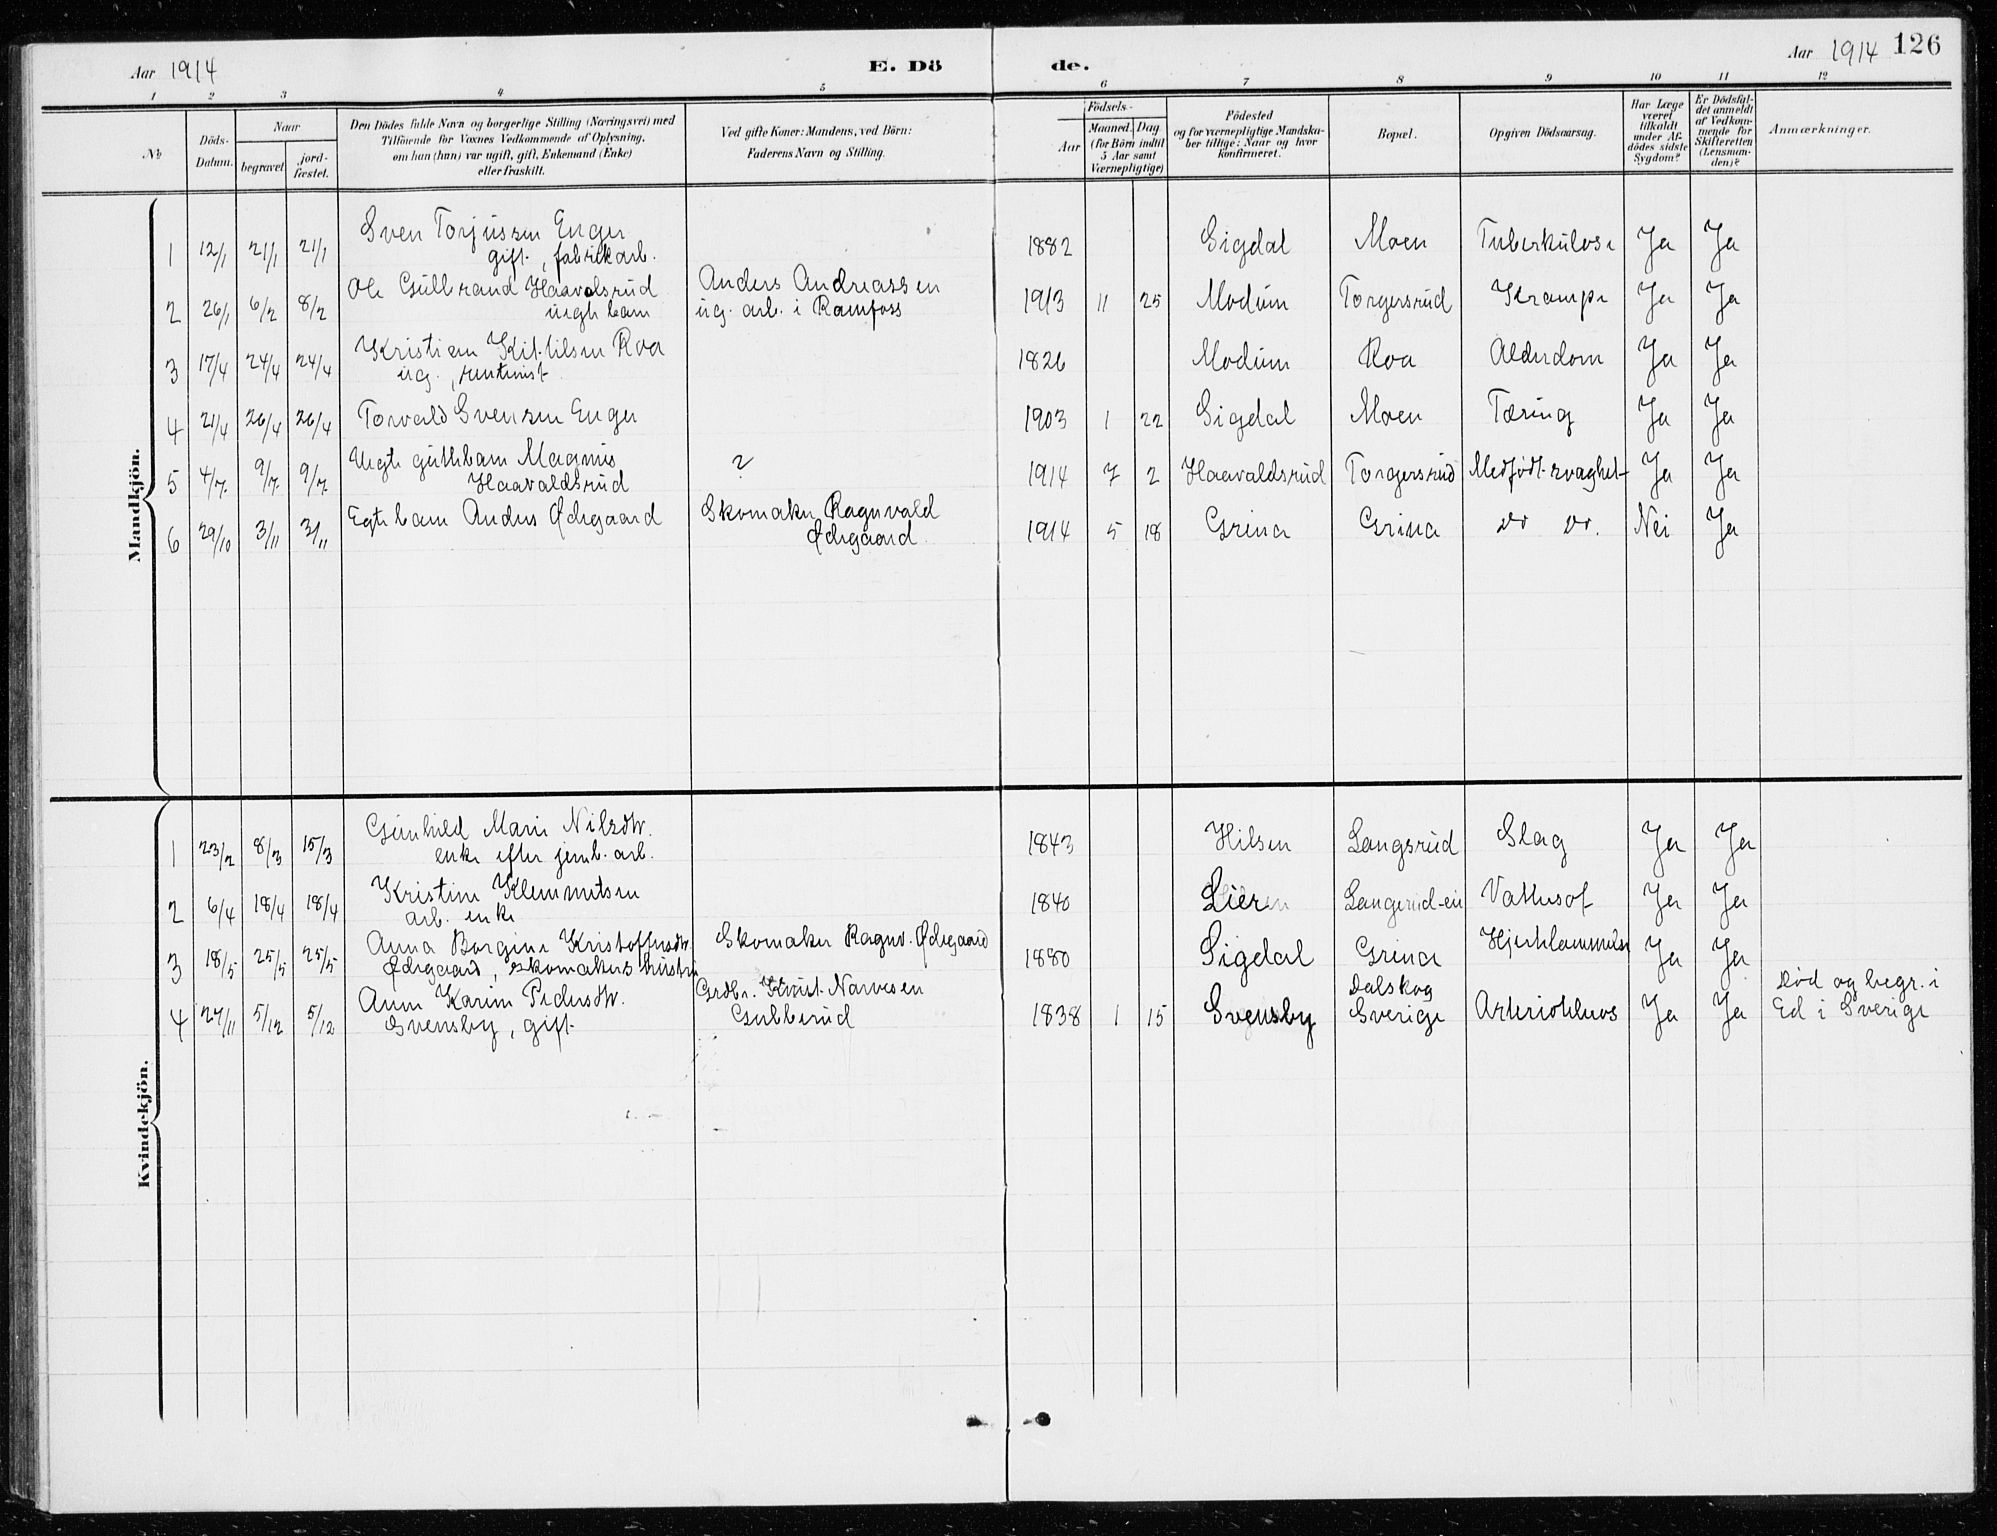 Aar 1914
E. Dö
de.
Aar 1914 126
1 2 3 4 5 6 7 8 9 10 11 12
№
Döds-
Datum.
Naar
begravet.
jord-
fæstet.
Den Dödes fulde Navn og borgerlige Stilling (Næringsvei) med
Tilföiende for Voxnes Vedkommende af Oplysning,
om han (hun) var ugift, gift, Enkemand (Enke)
eller fraskilt.
Ved gifte Koner: Mandens, ved Börn:
Faderens Navn og Stilling.
Födsels-
Aar
Maaned. Dag
(for Börn indtil
5 Aar samt
Værnepligtige)
Födested
og for værnepligtige Mandska-
ber tillige: Naar og hvor
konfirmeret.
Bopæl.
Opgiven Dödsaarsag.
Har Læge
været
tilkaldt
under Af-
dödes sidste
Sygdom?
Er Dödsfal-
det anmeldt
af Vedkom-
mende for
Skifteretten
(Lensman-
den)?
Anmærkninger.
Mandkjön.
1 12/1 21/1 21/1 Sven Torjussen Enger 1882 Sigdal Moen Tuberkulose Ja Ja
gift, fabrikarb.
2 26/1 6/2 8/2 Ole Gulbrand Haavolsrud Anders Andreassen 1913 11 25 Modum Torgersrud Krampe Ja Ja
uegte barn ug. arb. i Ramfoss
3 17/4 24/4 24/4 Kristian Kittilsen Roa 1826 Modum Roa Alderdom Ja Ja
ug., rentenist
4 21/4 26/4 26/4 Torvald Svensen Enger 1903 1 22 Sigdal Moen Tæring Ja Ja
5 4/7. 9/7. 9/7. Uegte guttebarn Magnus ? 1914 7 2 Haavaldsrud Torgersrud Medfødt svaghet Ja Ja
Haavaldsrud
6 29/10 3/11 3/11 Egte barn Anders Ødegaard Skomaker Ragnvald 1914 5 18 Grina Grina do do. Nei Ja
Ødegaard
Kvindekjön.
1 23/2 8/3 15/3 Gunhild Marie Nilsdtr. 1843 Hilsen Langsrud Slag Ja Ja
enke efter jernb. arb.
2 6/4 18/4 18/4 Kristine Klemmetsen 1840 Lier Langerud-eie Vattersot Ja Ja
arb. enke
3 18/5 25/5 25/5 Anna Borgine Kristoffersdtr. Skomaker Ragnv. Ødegaard 1880 Sigdal Grina Hjertelammelse Ja Ja
Ødegaard, skomakers hustru
4 27/11 5/12 5/12 Anne Karine Pedersdtr. Grdbr. Krist. Narvesen 1838 1 15 Svensby Dalskog Arteriosklerose Ja Ja Død og begr. i
Svensby, gift Gubberud Sverige Ed i Sverige